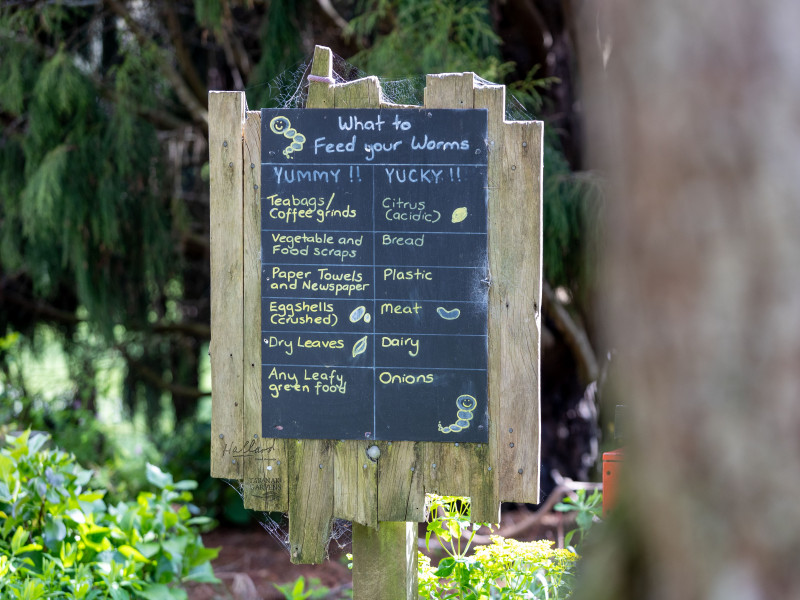 What to
Feed your Worms
YUMMY !! YUCKY !!
Teabags/
Coffee grinds
Citrus
(acidic)
Vegetable and
Food scraps
Bread
Paper Towels
and Newspaper
Plastic
Eggshells
(crushed)
Meat
Dry Leaves
Dairy
Any Leafy
green food
Onions